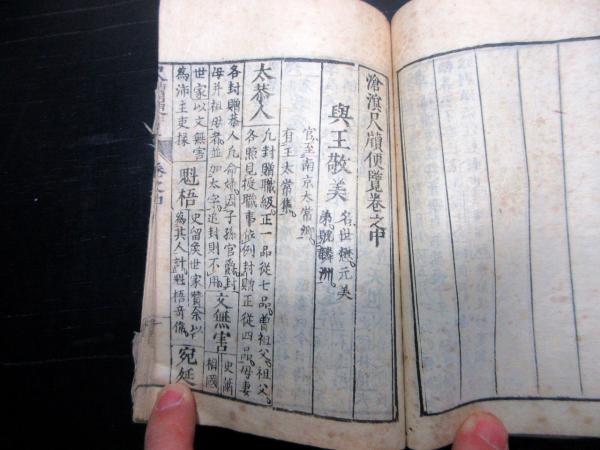 滄溟尺牘便覽卷之中
與王敬美 名世懋元美
弟號麟洲
官至南京太常卿
有王太常集
太恭人 凡封贈職級正一品從七品曾祖父祖父
各照見授職事依例封贈正從四品母妻
各封贈恭人凡命婦因子孫官爵封
母并祖母者並加太字追封則不用 文無害 史蕭
相國
世家以文無害
為沛主吏掾 魁梧 史留侯世家贊余以
為其人計魁梧奇偉 宛延
卷之中